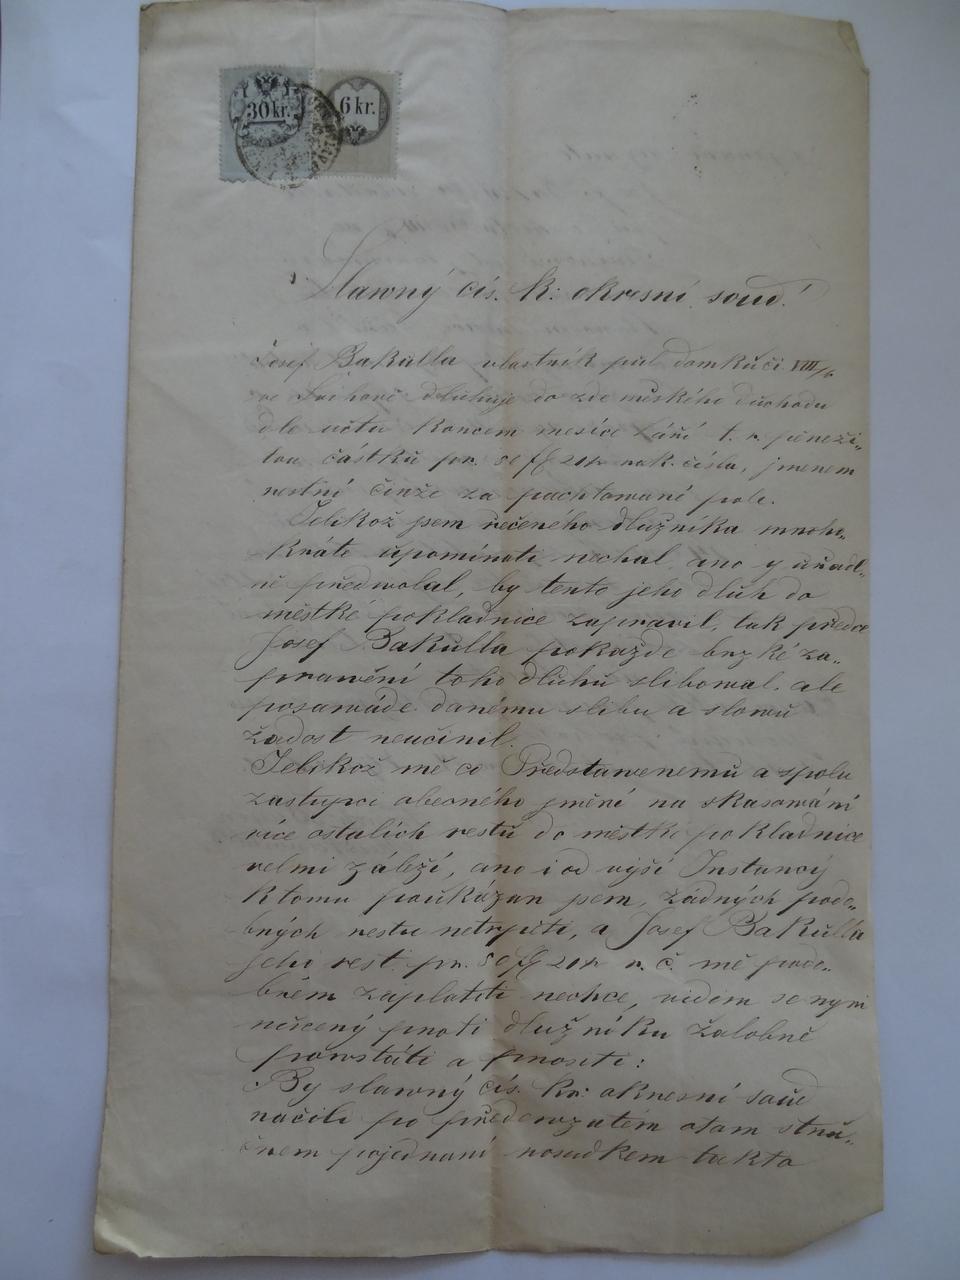 30 kr. 6 kr.
Slawný cís. k: okresní soud!
Josef Bakulla vlastník půl domku či VIII/6
ve Švihově dluhuje do zde městkého důchodu
dle učtu koncem mesíce Záři t. r. pěneži„
tou částku pr. 50 fl 20 kr rak. čísla, jmenem
restní činže za pachtowaní pole.
Jelikož jsem řečeného dlužníka mnoho„
kráte upomínati nechal, ano y uřad„
ně předwolal, by tento jeho dluh do
městké pokladnice zapravil, tak předce
Josef Bakulla pokažde brzké za„
prawění toho dluhů slibowal, ale
posawáde danému slibu a slowů
žadost neučinil.
Jelikož mě co Představenemu a spolu
zastupci obecného jmění na skasowání
více ostalích restů do městké pokladnice
velmi záleží, ano i od výší Instancý
k tomu poukázan jsem, žádných podo„
bných restu netrpěti, a Josef Bakulla
jeho rest pr. 50 fl 20 kr r. č. mě v dobrém
zaplatiti nechce, vidím se nyní
nucený proti dlužníku žalobně
powstáti a prositi:
By slawný cís. kr: okresní soud
račil po předewzatém ústním stru„
čném pojednaní rosudkem takto